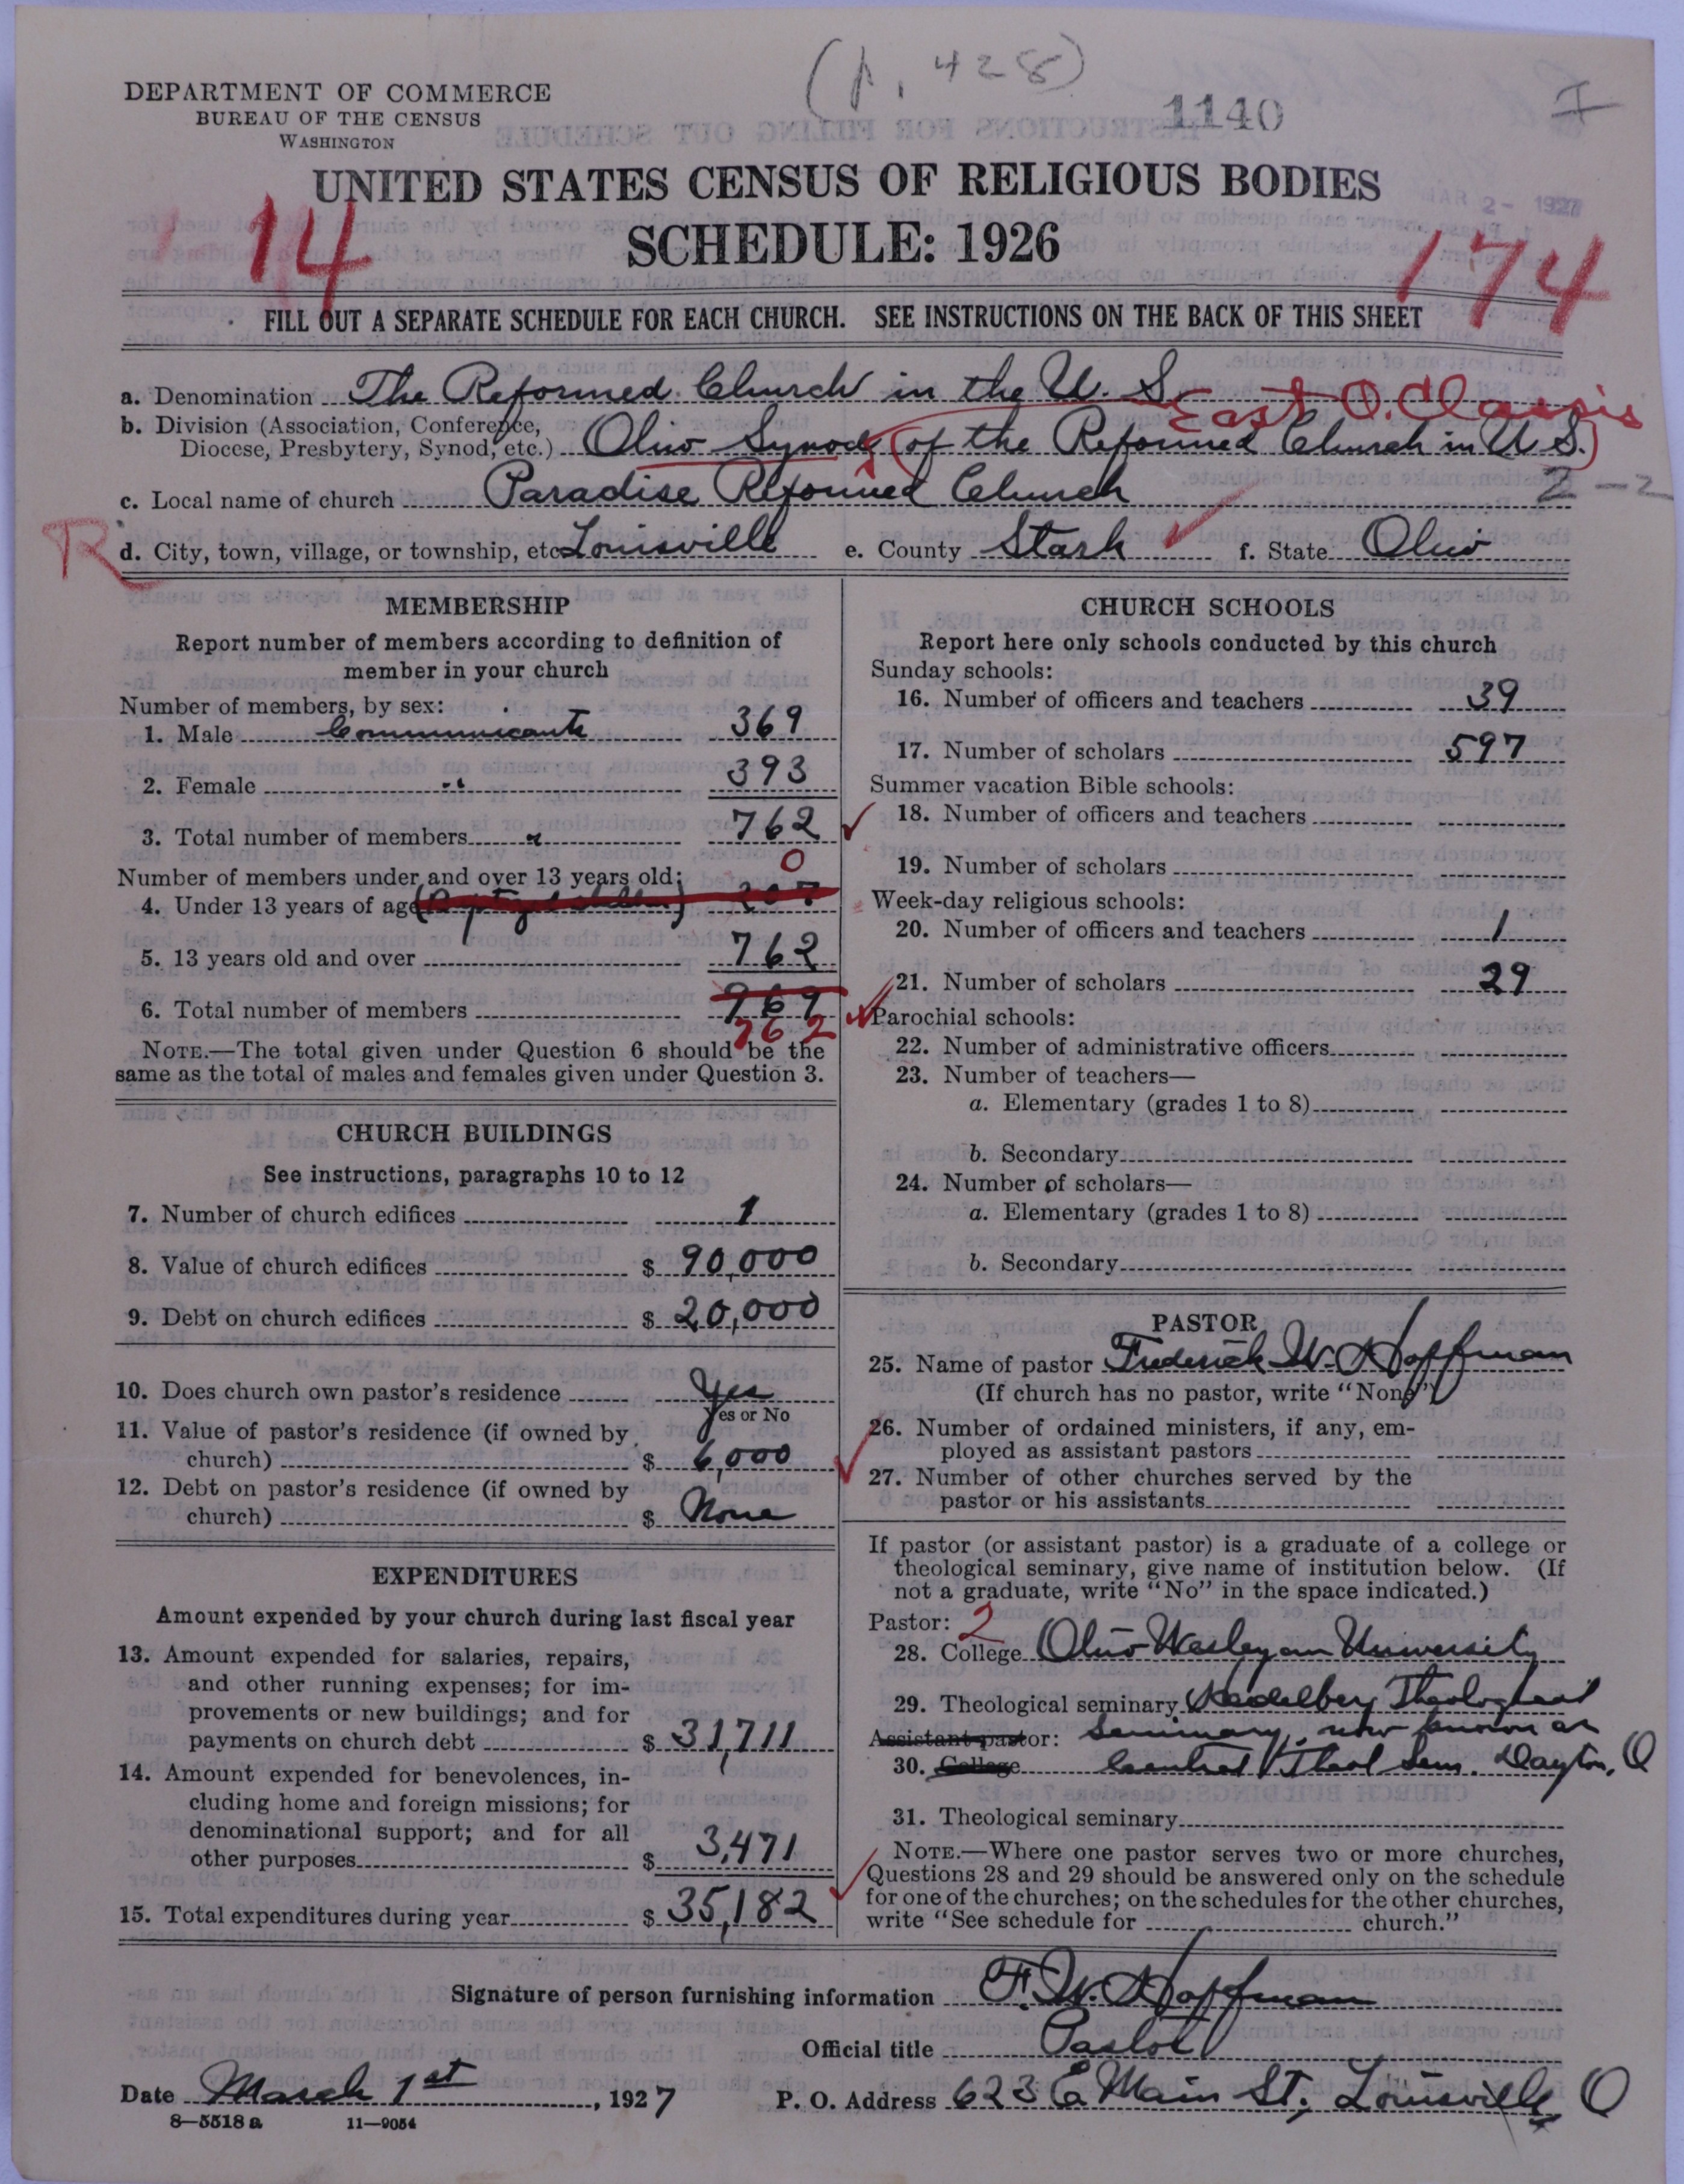 (p. 428)
DEPARTMENT OF COMMERCE
BUREAU OF THE CENSUS
WASHINGTON
1140
I
UNITED STATES CENSUS OF RELIGIOUS BODIES
MAR 2 - 1927
14
SCHEDULE: 1926
174
FILL OUT A SEPARATE SCHEDULE FOR EACH CHURCH. SEE INSTRUCTIONS ON THE BACK OF THIS SHEET
a. Denomination The Reformed Church in the U. S.
East O. Classis
b. Division (Association, Conference,
Diocese, Presbytery, Synod, etc.) Ohio Synod (of the Reformed Church in U S.)
c. Local name of church Paradise Reformed Church
2-2
R
d. City, town, village, or township, etc Louisville e. County Stark f. State Ohio
MEMBERSHIP
Report number of members according to definition of
member in your church
Number of members, by sex:
1. Male Communicants 369
2. Female " 393
3. Total number of members " 762
Number of members under and over 13 years old: 0
4. Under 13 years of age (Baptized children) 207
5. 13 years old and over 762
6. Total number of members 969
762
NOTE.—The total given under Question 6 should be the
same as the total of males and females given under Question 3.
CHURCH BUILDINGS
See instructions, paragraphs 10 to 12
7. Number of church edifices 1
8. Value of church edifices $ 90,000
9. Debt on church edifices $ 20,000
10. Does church own pastor's residence Yes
Yes or No
11. Value of pastor's residence (if owned by
church) $ 6,000
12. Debt on pastor's residence (if owned by
church) $ None
EXPENDITURES
Amount expended by your church during last fiscal year
13. Amount expended for salaries, repairs,
and other running expenses; for im-
provements or new buildings; and for
payments on church debt $ 31,711
14. Amount expended for benevolences, in-
cluding home and foreign missions; for
denominational support; and for all
other purposes $ 3,471
15. Total expenditures during year $ 35,182
CHURCH SCHOOLS
Report here only schools conducted by this church
Sunday schools:
16. Number of officers and teachers 39
17. Number of scholars 597
Summer vacation Bible schools:
18. Number of officers and teachers
19. Number of scholars
Week-day religious schools:
20. Number of officers and teachers 1
21. Number of scholars 29
Parochial schools:
22. Number of administrative officers
23. Number of teachers—
a. Elementary (grades 1 to 8)
b. Secondary
24. Number of scholars—
a. Elementary (grades 1 to 8)
b. Secondary
PASTOR
25. Name of pastor Frederick W. Hoffman
(If church has no pastor, write "None")
26. Number of ordained ministers, if any, em-
ployed as assistant pastors
27. Number of other churches served by the
pastor or his assistants
If pastor (or assistant pastor) is a graduate of a college or
theological seminary, give name of institution below. (If
not a graduate, write "No" in the space indicated.)
Pastor: 2
28. College Ohio Wesleyan University
29. Theological seminary Heidelberg Theological
Assistant pastor: Seminary, now known as
30. College Central Theol Sem. Dayton, O
31. Theological seminary
NOTE.—Where one pastor serves two or more churches,
Questions 28 and 29 should be answered only on the schedule
for one of the churches; on the schedules for the other churches,
write "See schedule for church."
Signature of person furnishing information F. W. Hoffman
Official title Pastor
Date March 1st, 1927 P. O. Address 623 E Main St, Louisville, O
8-5518 a 11-9054